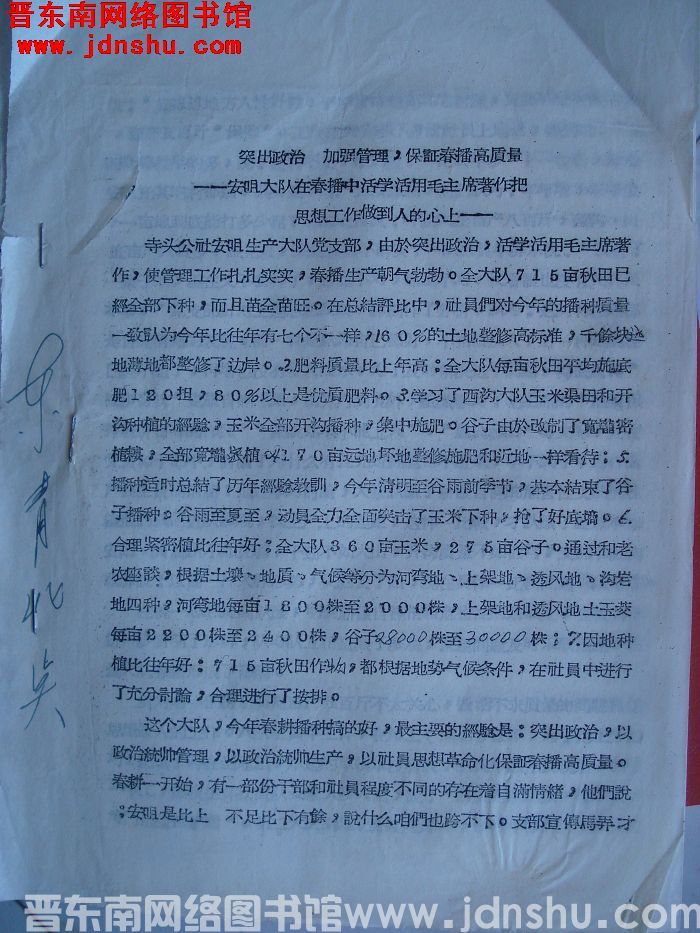 晋东南网络图书馆
www.jdnshu.com
突出政治　加强管理，保証春播高质量
——安咀大队在春播中活学活用毛主席著作把
思想工作做到人的心上——
寺头公社安咀生产大队党支部，由於突出政治，活学活用毛主席著
作，使管理工作扎扎实实，春播生产朝气勃勃。全大队715亩秋田已
經全部下种，而且苗全苗旺。在总結評比中，社員們对今年的播种质量
一致认为今年比往年有七个不一样，1.60%的土地整修高标准，千馀块
地薄地都整修了边岸。2.肥料质量比上年高：全大队每亩秋田平均施底
肥120担，80%以上是优质肥料。3.学习了西沟大队玉米渠田和开
沟种植的經驗，玉米全部开沟播种，集中施肥。谷子由於改制了寬壠密
植耧，全部寬壠密植。4.170亩远地坏地整修施肥和近地一样看待：5.
播种适时总結了历年經驗教訓，今年淸明至谷雨前季节，基本結束了谷
子播种。谷雨至夏至，动員全力全面突击了玉米下种，抢了好底墒。6.
合理紧密植比往年好：全大队360亩玉米，275亩谷子。通过和老
农座談，根据土壤、地质、气候等分为河弯地、上架地、透风地、沟岩
地四种，河弯地每亩1800株至2000株，上架地和透风地土玉茭
每亩2200株至2400株，谷子28000株至30000株：7.因地种
植比往年好：715亩秋田作物，都根据地势气候条件，在社員中进行
了充分討論，合理进行了按排。
这个大队，今年春耕播种搞的好，最主要的經驗是：突出政治，以
政治統帅管理，以政治統帅生产，以社員思想革命化保証春播高质量。
春耕一开始，有一部份干部和社員程度不同的存在着自滿情緒，他們說
：安咀是比上　不足比下有餘，說什么咱們也跨不下。支部宣傳馮弄才
晋东南网络图书馆 www.jdnshu.com